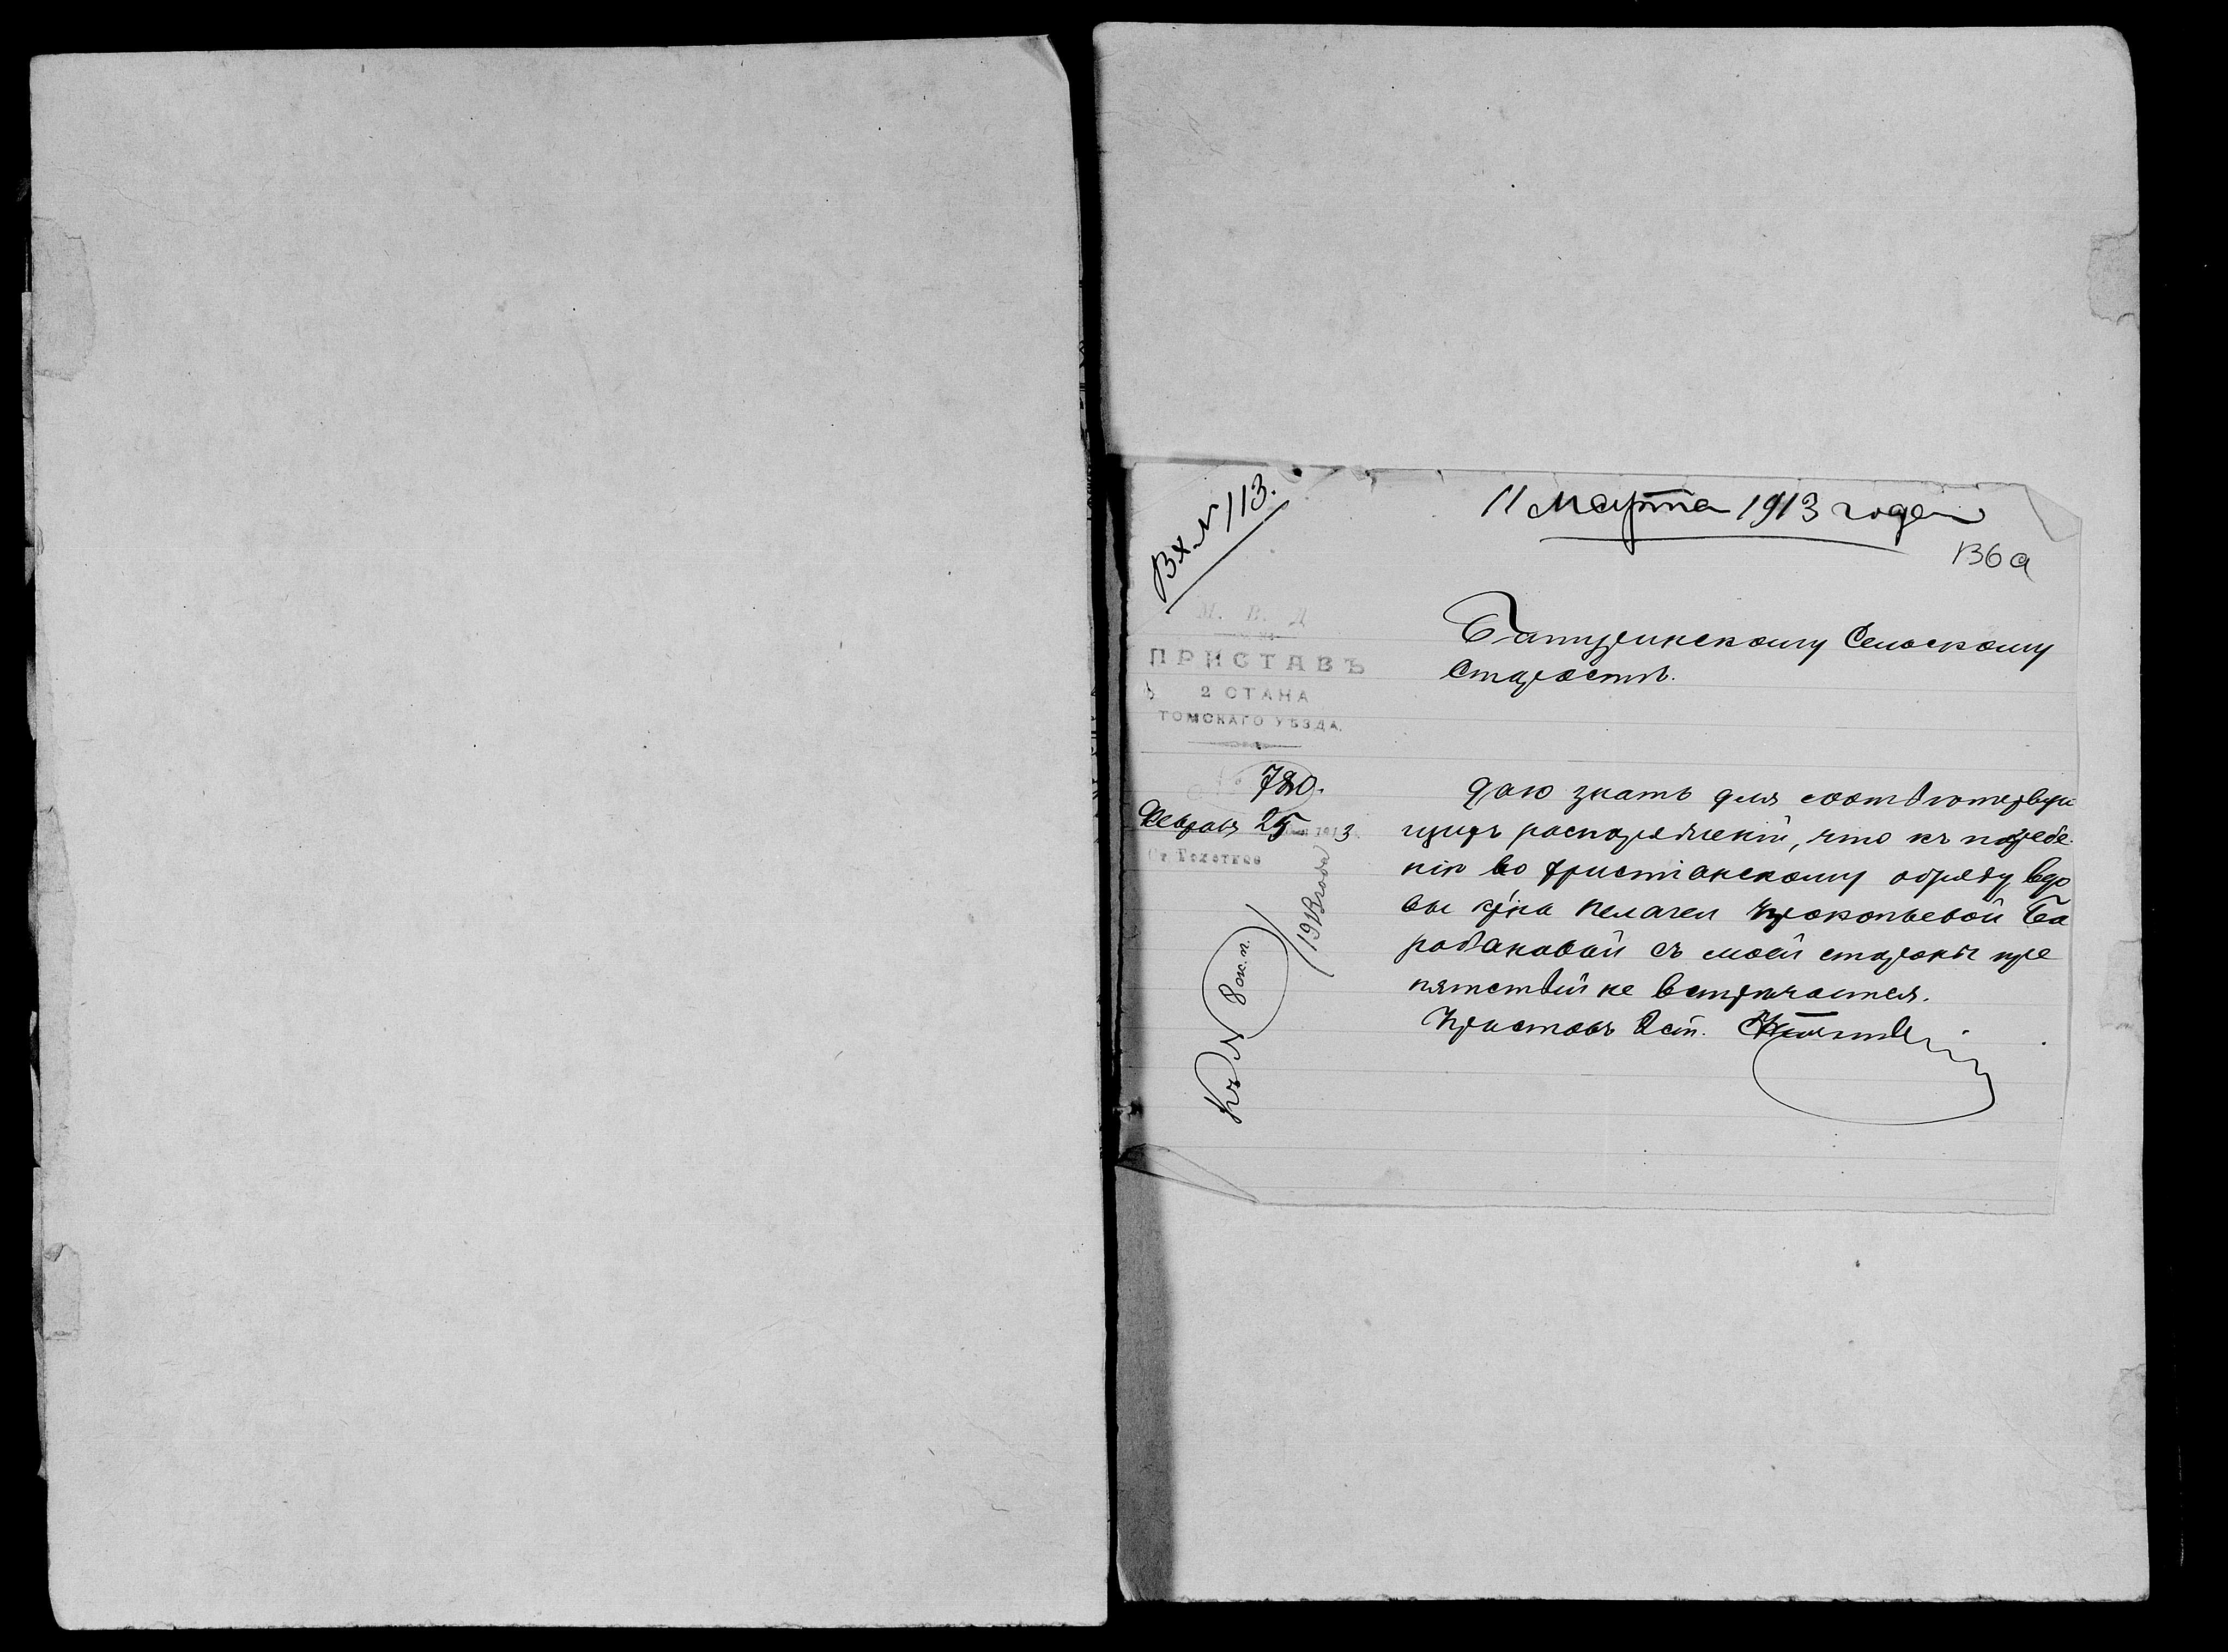 Вх. № 113.
11 Марта 1913 года
136а
М. В. Д
ПРИСТАВЪ
2 СТАНА
ТОМСКАГО УѢЗДА.
780.
Февраля 25 1913
Батуринскому Сельскому
Старостѣ.
Даю знать для соотвѣтствую
щихъ распоряженій, что къ погребе-
нію по христіанскому обряду вдо
вы кр-на Пелагеи Прокопьевой Ба
рабановой съ моей стороны пре
пятствій не встрѣчается.
Приставъ 2 ст.
Къ № 8 ок. п.
1913 года